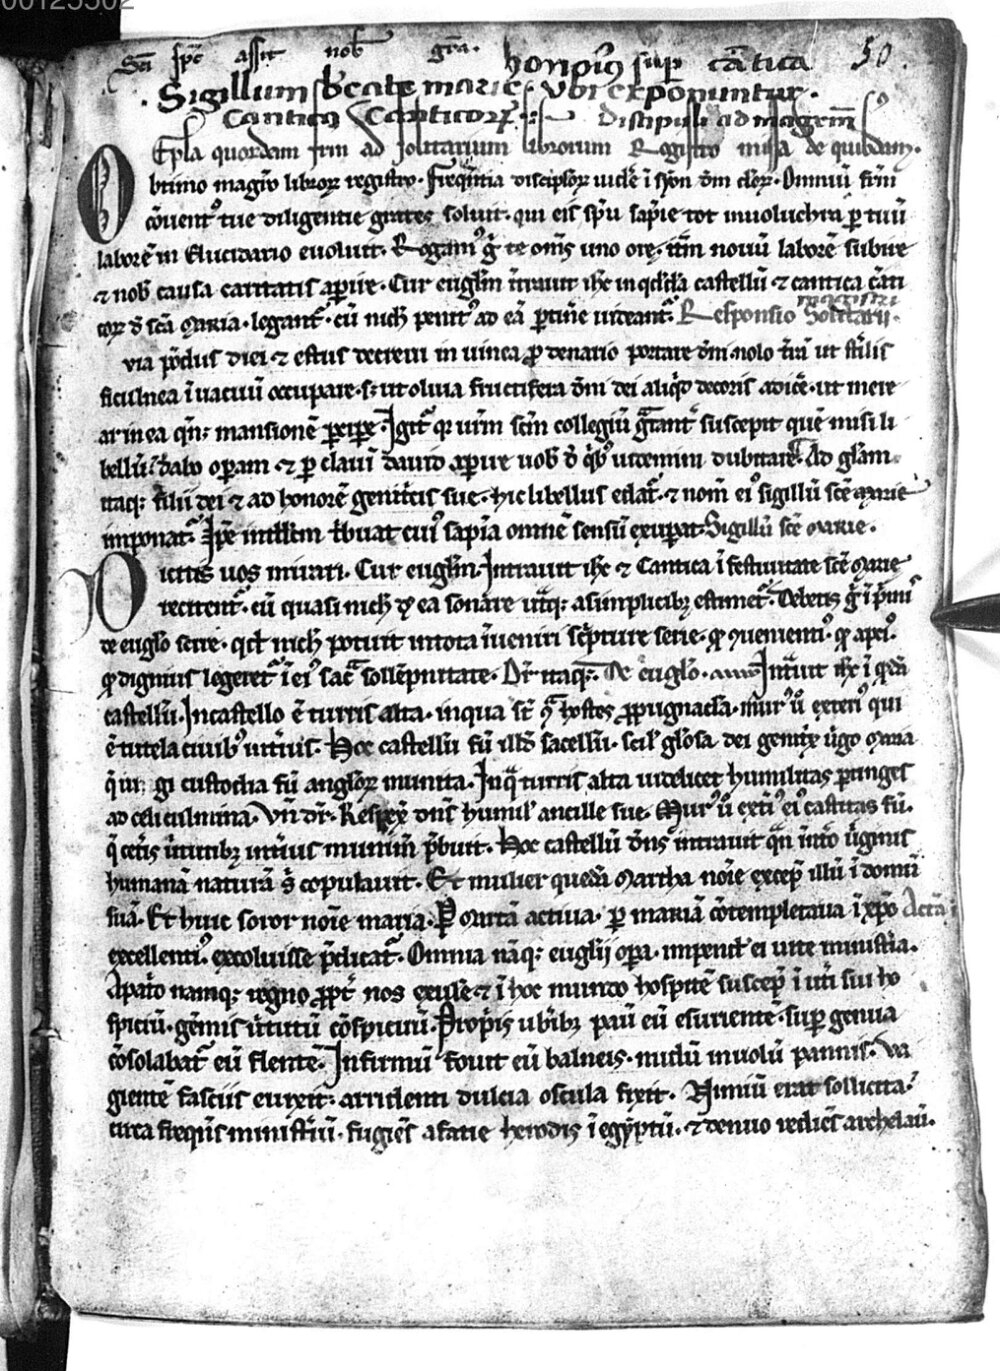 00125502
Sci spc assit nob gra.
honoriꝰ sup cantica 50.
Sigillum beate marie. vbi exponuntur.
Cantica Canticoꝝ. Discipuli ad magrm
Epla quordam frm ad solitarium librorum Registro missa de quibdam.
Obtimo magro libroꝝ registro. frequentia discipuloꝝ
conuentꝰ tue diligentie grates soluit. qui eis spu sapie tot inuoluchra p tuu
labore in Elucidario euoluit. Rogamꝰ g te oms uno ore. itm nouu labore subire
⁊ nob causa caritatis apire. Cur euglm intrauit ihc in qdda castellu ⁊ cantica canti
coꝝ de sca Maria. legant. cu nich penitꝰ ad ea ptine uideant. Responsio Solitarii.
magistri
via pondus diei ⁊ estus decreui in uinea p denario portare dni. nolo tram ut stilis
ficulnea i uacuu occupare. s; ut oliua fructifera dom dei aliqd decoris adice. ut mere
ar in ea qn; mansione pcipe. Igit qr urm scm collegiu gtant suscepit que misi li
bellu. dabo operam ⁊ p claui dauid apire uob de qbꝰ uidemini dubitare. Ad glam
itaq; filii dei ⁊ ad honore genitcis sue. hic libellus edat. ⁊ nom eiꝰ sigillu sce marie
imponat. Ipe intllm tbuat cuiꝰ sapia omne sensu exupat. Sigillu sce Marie.
Dicitis uos mirari. Cur euglm. Intrauit ihc ⁊ Cantica i festiuitate sce Marie
recitent. cu quasi nich de ea sonare utq; a simplicibꝫ estimet. Debetis g i pmis
de euglo scire. qd nich potuit in tota inueniri scpture serie. qd conuenientiꝰ. qd aptiꝰ.
qd dignius legeret i eiꝰ sac sollepnitate. Dr itaq;. De euglo. Intrauit ihc i qda
castellu. In castello e turris alta. in qua st hostes ppugnacla. murꝰ u exteriꝰ qui
e tutela ciuibꝰ intius. Hoc castellu fu illd sacellu. scil glosa dei genitrix ugo Maria
q iugi custodia fu angloꝝ munita. In q turris alta uidelicet humilitas ptinges
ad celi culmina. Vn dr. Respex dns humil ancille sue. Murꝰ u extiꝰ eiꝰ castitas fu.
q cetis uirtutibꝫ intius munim pbuit. Hoc castellu dns intrauit qn in uto uirginis
humana natura s copulauit. Et mulier queda Martha noie excep illu i domu
sua. Et huic soror noie maria. P Marta actiua. p maria contemplatiua
excellentiꝰ excoluisse pdicat. Omnia naq; euglii opa. impendit ei uite ministria.
Apato namq; regno ppt nos exulse ⁊ i hoc mundo hospite suscep i uti sui ho
spiciu. gemis uirtutu conspicuu. Propis ubibꝫ pauit eu esuriente. sup genua
consolabat eu flente. Infirmu fouit eu balneis. nudu inuolu pannis. va
giente fasciis euixit. arridenti dulcia oscula fixit. Nimiu erat sollicita
circa frequens ministiu. fugiens a facie herodis i egyptu. ⁊ denuo redies archelau.